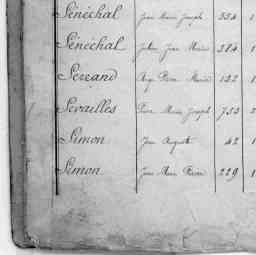 Sénéchal Jean Marie Joseph 334 1
Sénéchal Julien Jean Marie 384 1
Séreand Ange Pierre Marie 132 1
Servailles Pierre Marie Joseph 733 2
Simon Jean Auguste 42 1
Simon Jean Marie Pierre 229 1